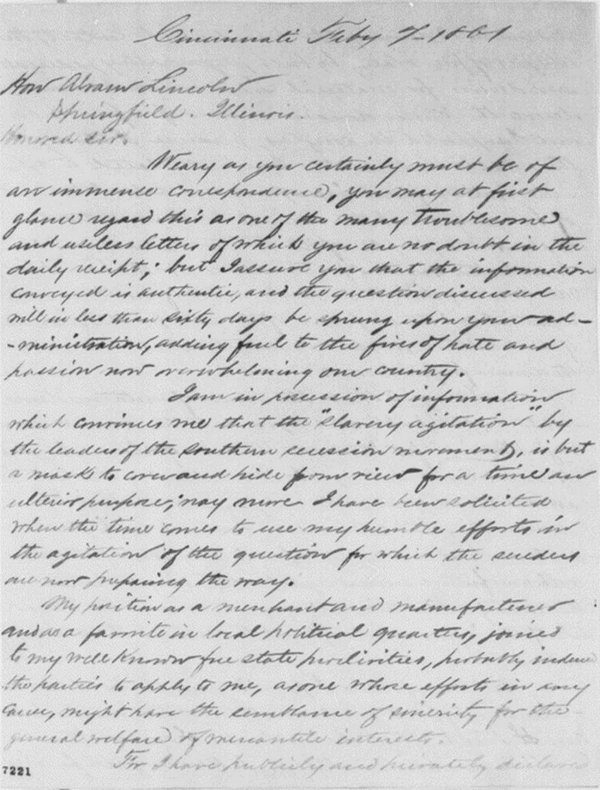 Cincinnati Feby 7-1861
Hon Abram Lincoln
Springfield. Illinois.
Honored Sir.
Weary as you certainly must be of
an immense correspondence, you may at first
glance regard this as one of the many troublesome
and useless letters of which you are no doubt in the
daily receipt; but I assure you that the information
conveyed is authentic, and the question discussed
will in less than sixty days be sprung upon your ad-
-ministration, adding fuel to the fires of hate and
passion now overwhelming our country.
I am in posession of information
which convinces me that the "slavery agitation" by
the leaders of the southern secession movement, is but
a mask to cover and hide from view for a time an
ulterior purpose; nay more I have been solicited
when the time comes to use my humble efforts in
the agitation of the question for which the seceders
are now preparing the way.
My position as a merchant and manufacturer
and as a favorite in local political quarters, joined
to my well known free state proclivities, probably induced
the parties to apply to me, as one whose efforts in any
cause, might have the semblance of sincerity for the
general welfare of mercantile interests.
For I have publicly and privately declared
7221